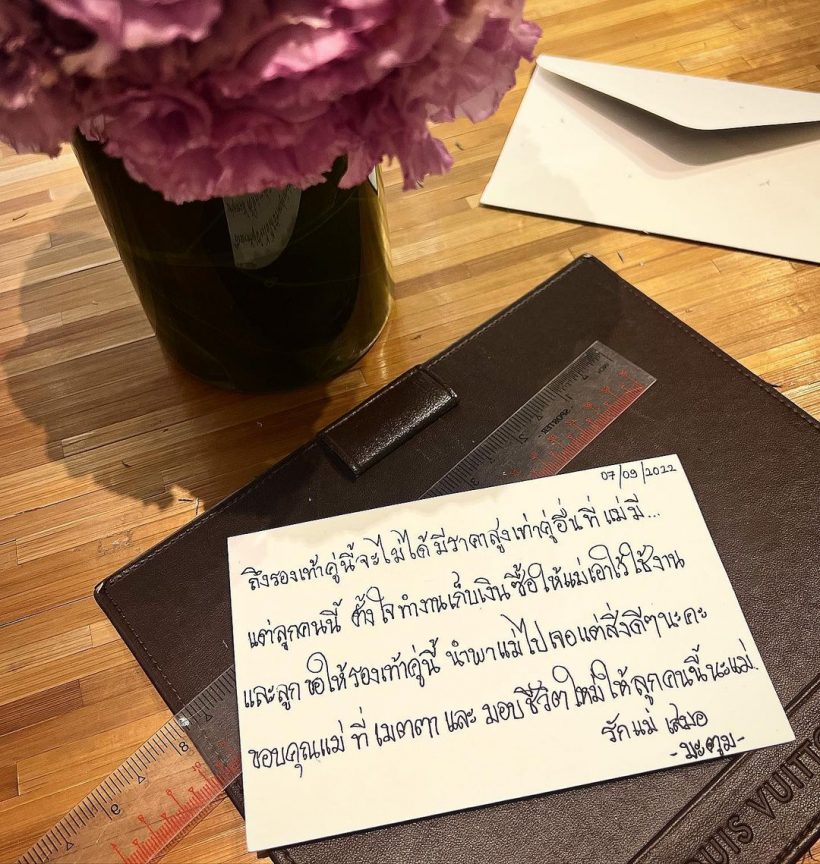 07/09/2022
ถึงรองเท้าคู่นี้จะไม่ได้มีราคาสูงเท่าคู่อื่นที่แม่มี...
แต่ลูกคนนี้ ตั้งใจทำงานเก็บเงินซื้อให้แม่เอาไว้ใช้งาน
และลูกขอให้รองเท้าคู่นี้ นำพาแม่ไปเจอแต่สิ่งดีๆนะคะ
ขอบคุณแม่ที่เมตตาและมอบชีวิตใหม่ให้ลูกคนนี้นะแม่.
รักแม่เสมอ
-มะตูม-
UIS VUITTO